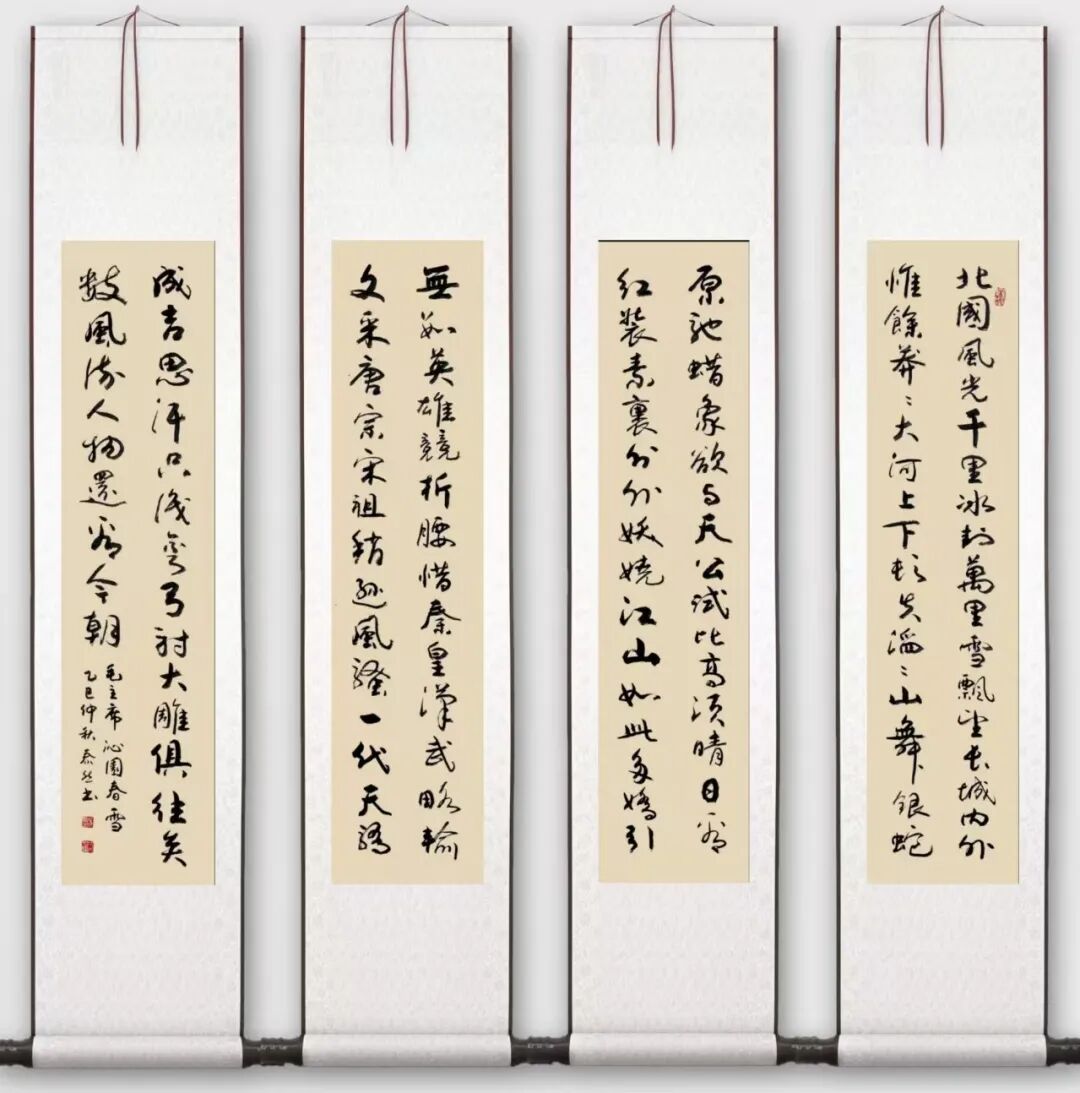 北國風光千里冰封萬里雪飄望長城内外
惟餘莽〻大河上下頓失滔〻山舞銀蛇
原馳蜡象欲与天公試比高須晴日看
红裝素裹分外妖嬈江山如此多嬌引
無數英雄競折腰惜秦皇漢武略輸
文采唐宗宋祖稍遜風騷一代天驕
成吉思汗只識彎弓射大雕俱往矣
数風流人物還看今朝
毛主席沁園春雪
乙巳仲秋泰然书